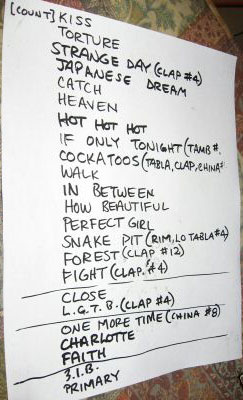 [COUNT] KISS
TORTURE
STRANGE DAY (CLAP #4)
JAPANESE DREAM
CATCH
HEAVEN
HOT HOT HOT
IF ONLY TONIGHT (TAMB #
COCKATOOS (TABLA, CLAP, CHINA #
WALK
IN BETWEEN
HOW BEAUTIFUL
PERFECT GIRL
SNAKE PIT (RIM, LO TABLA #4)
FOREST (CLAP #12)
FIGHT (CLAP. #4)
CLOSE
L.G.T.B. (CLAP #4)
ONE MORE TIME (CHINA #8)
CHARLOTTE
FAITH
3.I.B.
PRIMARY